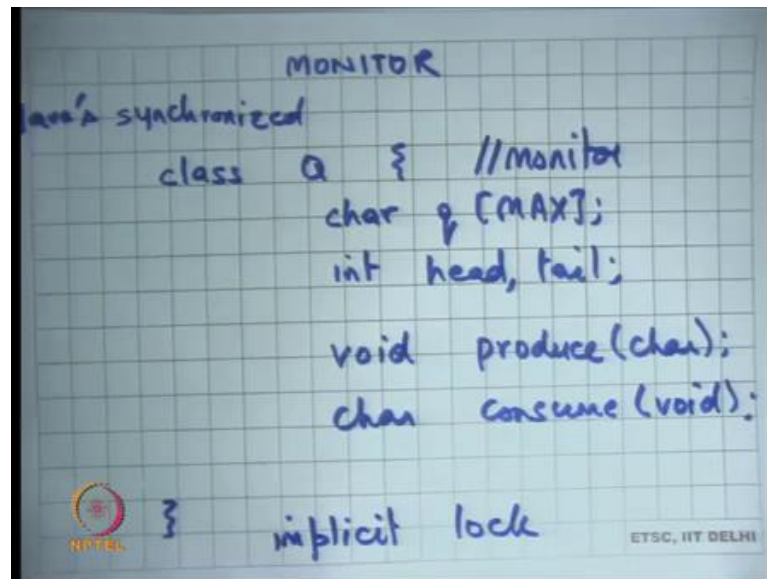 MONITOR
ava's synchronized
class Q { //monitor
char q [MAX];
int head, tail;
void produce (char);
char consume (void);
}
implicit lock
NPTEL
ETSC, IIT DELHI